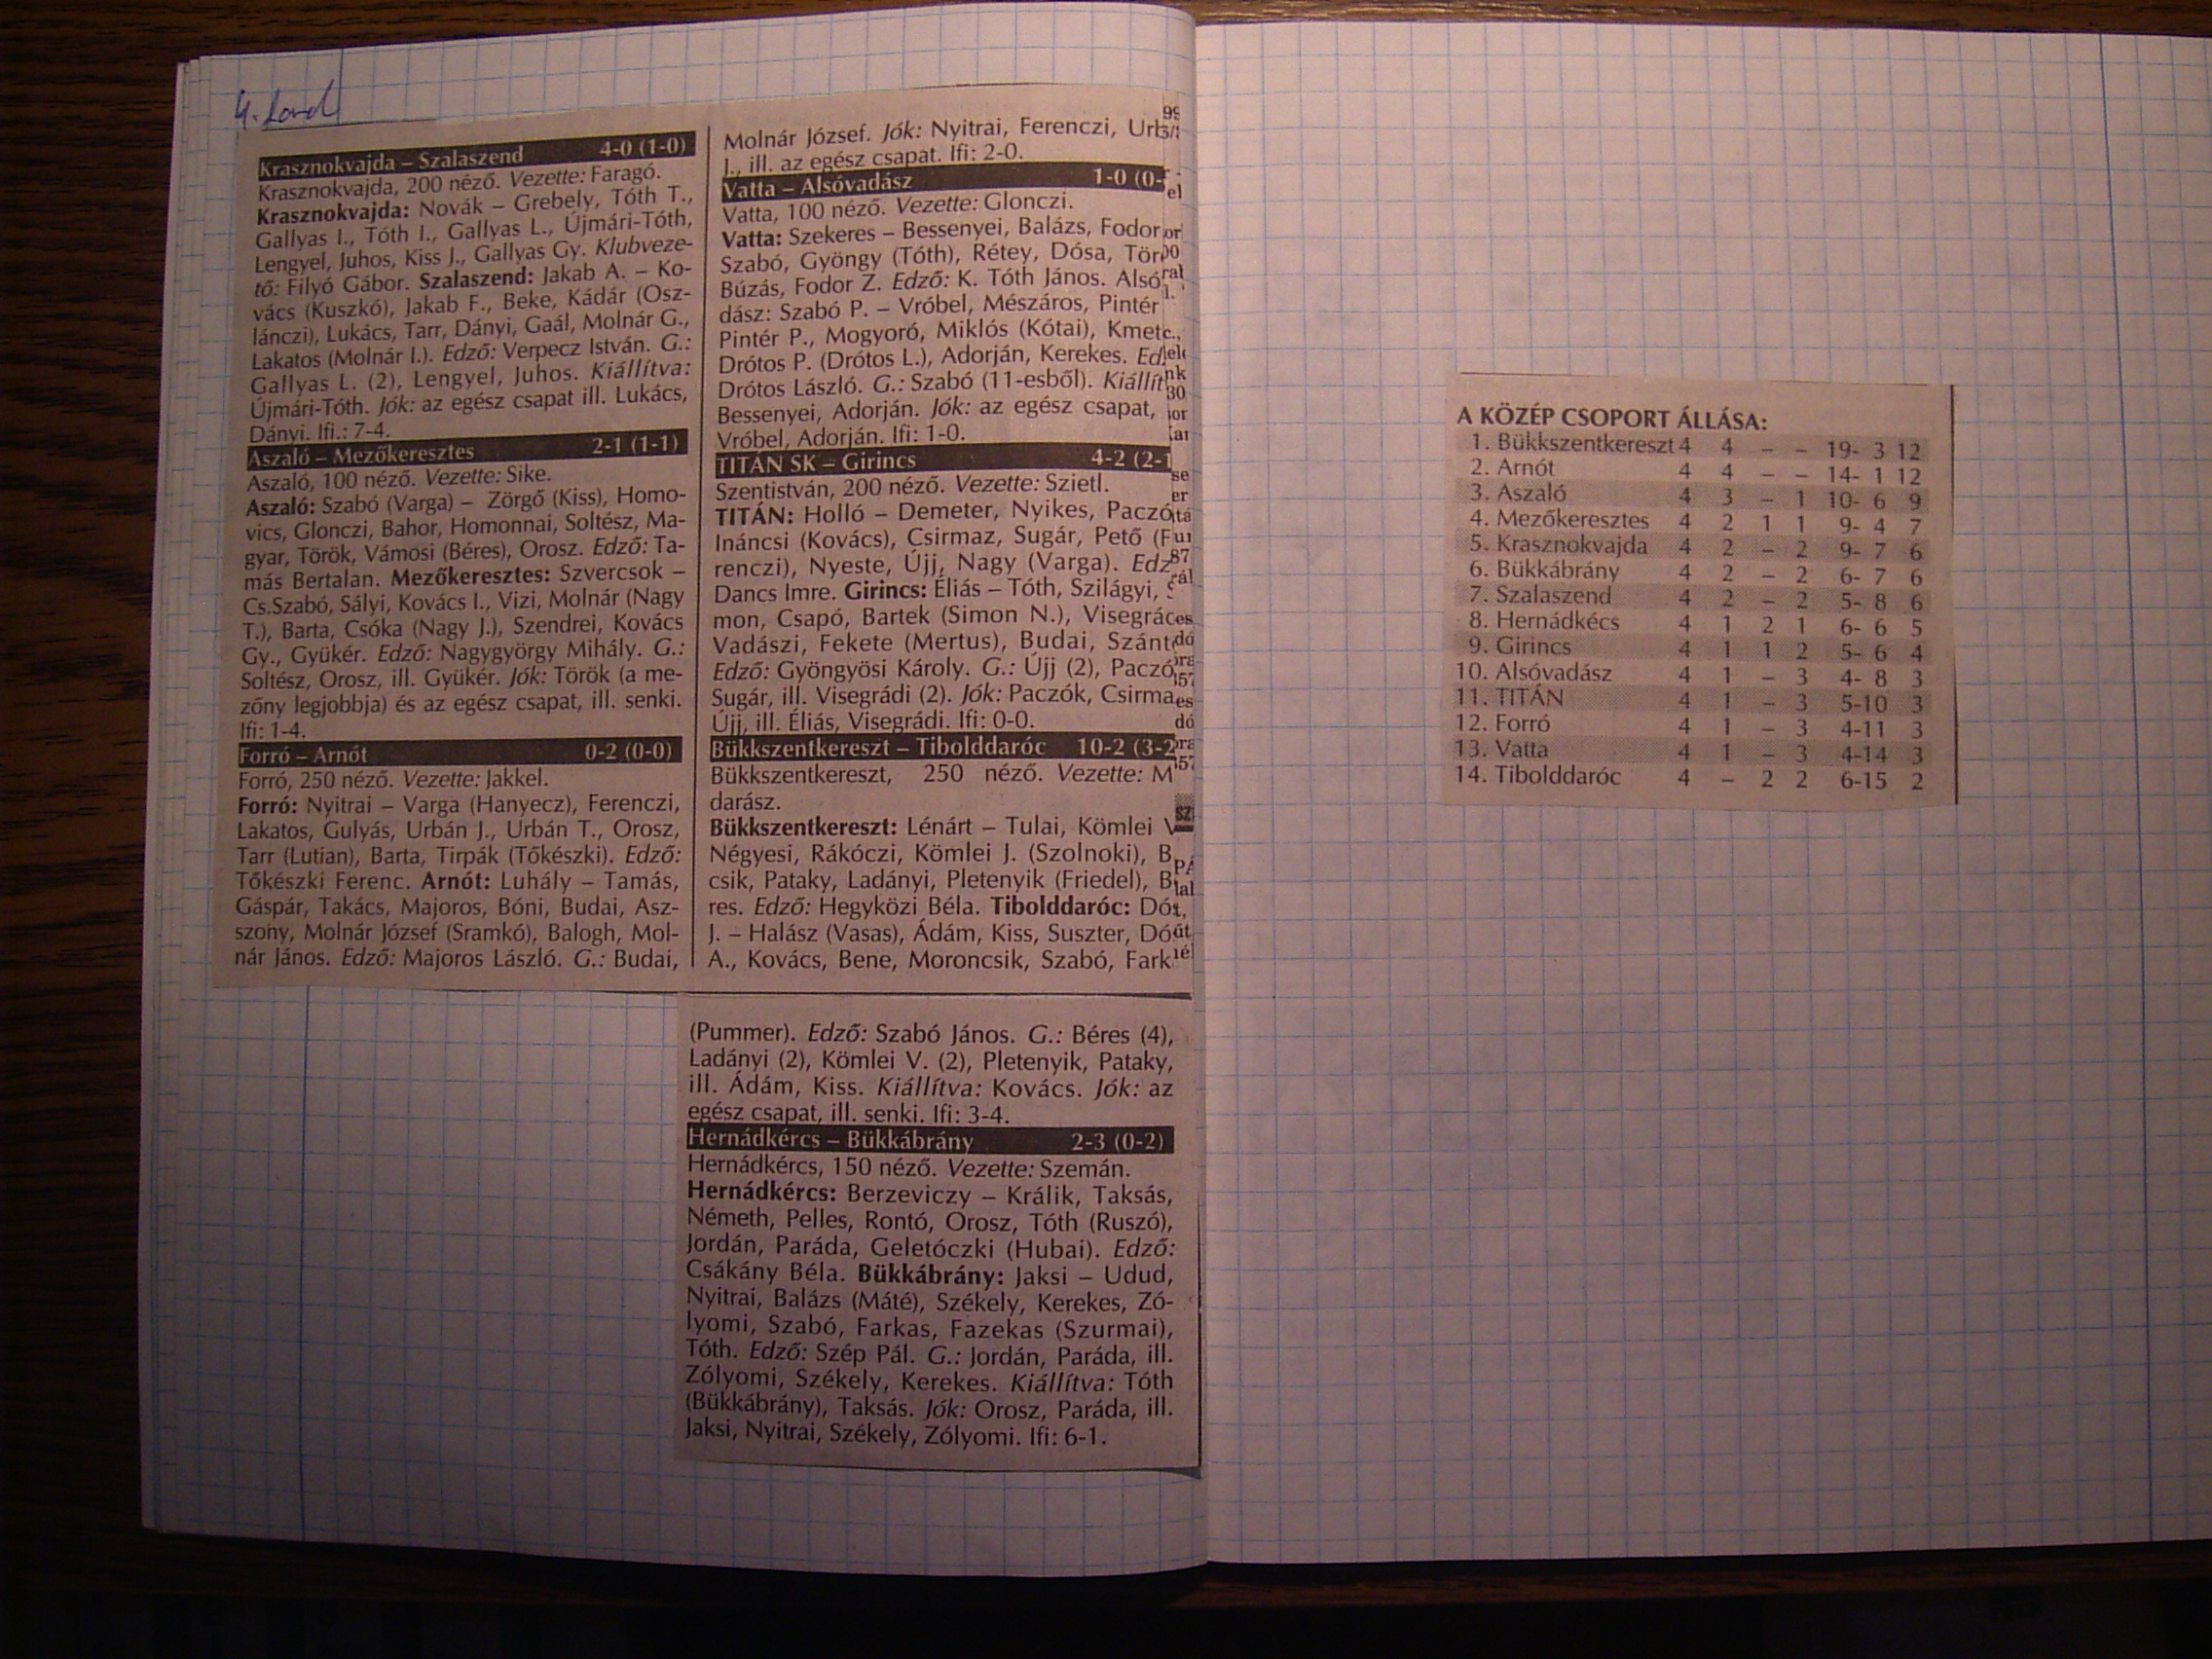 4. ford
Krasznokvajda – Szalaszend 4-0 (1-0)
Krasznokvajda, 200 néző. Vezette: Faragó.
Krasznokvajda: Novák – Grebely, Tóth T.,
Gallyas I., Tóth I., Gallyas L., Újmári-Tóth,
Lengyel, Juhos, Kiss J., Gallyas Gy. Klubveze-
tő: Filyó Gábor. Szalaszend: Jakab A. – Ko-
vács (Kuszkó), Jakab F., Beke, Kádár (Osz-
lánczi), Lukács, Tarr, Dányi, Gaál, Molnár G.,
Lakatos (Molnár I.). Edző: Verpecz István. G.:
Gallyas L. (2), Lengyel, Juhos. Kiállítva:
Újmári-Tóth. Jók: az egész csapat ill. Lukács,
Dányi. Ifi.: 7-4.
Aszaló – Mezőkeresztes 2-1 (1-1)
Aszaló, 100 néző. Vezette: Sike.
Aszaló: Szabó (Varga) – Zörgő (Kiss), Homo-
vics, Glonczi, Bahor, Homonnai, Soltész, Ma-
gyar, Török, Vámosi (Béres), Orosz. Edző: Ta-
más Bertalan. Mezőkeresztes: Szvercsok –
Cs.Szabó, Sályi, Kovács I., Vizi, Molnár (Nagy
T.), Barta, Csóka (Nagy J.), Szendrei, Kovács
Gy., Gyükér. Edző: Nagygyörgy Mihály. G.:
Soltész, Orosz, ill. Gyükér. Jók: Török (a me-
zőny legjobbja) és az egész csapat, ill. senki.
Ifi: 1-4.
Forró – Arnót 0-2 (0-0)
Forró, 250 néző. Vezette: Jakkel.
Forró: Nyitrai – Varga (Hanyecz), Ferenczi,
Lakatos, Gulyás, Urbán J., Urbán T., Orosz,
Tarr (Lutian), Barta, Tirpák (Tőkészki). Edző:
Tőkészki Ferenc. Arnót: Luhály – Tamás,
Gáspár, Takács, Majoros, Bóni, Budai, Asz-
szony, Molnár József (Sramkó), Balogh, Mol-
nár János. Edző: Majoros László. G.: Budai,
Molnár József. Jók: Nyitrai, Ferenczi, Urb
J., ill. az egész csapat. Ifi: 2-0.
Vatta – Alsóvadász 1-0 (0-
Vatta, 100 néző. Vezette: Glonczi.
Vatta: Szekeres – Bessenyei, Balázs, Fodor
Szabó, Gyöngy (Tóth), Rétey, Dósa, Tör
Búzás, Fodor Z. Edző: K. Tóth János. Alsó
dász: Szabó P. – Vróbel, Mészáros, Pintér
Pintér P., Mogyoró, Miklós (Kótai), Kmetc
Drótos P. (Drótos L.), Adorján, Kerekes. Ed
Drótos László. G.: Szabó (11-esből). Kiállít
Bessenyei, Adorján. Jók: az egész csapat,
Vróbel, Adorján. Ifi: 1-0.
TITÁN SK – Girincs 4-2 (2-1
Szentistván, 200 néző. Vezette: Szietl.
TITÁN: Holló – Demeter, Nyikes, Paczó
Ináncsi (Kovács), Csirmaz, Sugár, Pető (F
renczi), Nyeste, Újj, Nagy (Varga). Edz
Dancs Imre. Girincs: Éliás – Tóth, Szilágyi, S
mon, Csapó, Bartek (Simon N.), Visegrád
Vadászi, Fekete (Mertus), Budai, Szántó
Edző: Gyöngyösi Károly. G.: Újj (2), Paczó
Sugár, ill. Visegrádi (2). Jók: Paczók, Csirma
Újj, ill. Éliás, Visegrádi. Ifi: 0-0.
Bükkszentkereszt – Tibolddaróc 10-2 (3-2
Bükkszentkereszt, 250 néző. Vezette: M
darász.
Bükkszentkereszt: Lénárt – Tulai, Kömlei V
Négyesi, Rákóczi, Kömlei J. (Szolnoki), B
csik, Pataky, Ladányi, Pletenyik (Friedel), B
res. Edző: Hegyközi Béla. Tibolddaróc: Dó
J. – Halász (Vasas), Ádám, Kiss, Suszter, Dó
A., Kovács, Bene, Moroncsik, Szabó, Fark
(Pummer). Edző: Szabó János. G.: Béres (4),
Ladányi (2), Kömlei V. (2), Pletenyik, Pataky,
ill. Ádám, Kiss. Kiállítva: Kovács. Jók: az
egész csapat, ill. senki. Ifi: 3-4.
Hernádkércs – Bükkábrány 2-3 (0-2)
Hernádkércs, 150 néző. Vezette: Szemán.
Hernádkércs: Berzeviczy – Králik, Taksás,
Németh, Pelles, Rontó, Orosz, Tóth (Ruszó),
Jordán, Paráda, Geletóczki (Hubai). Edző:
Csákány Béla. Bükkábrány: Jaksi – Udud,
Nyitrai, Balázs (Máté), Székely, Kerekes, Zó-
lyomi, Szabó, Farkas, Fazekas (Szurmai),
Tóth. Edző: Szép Pál. G.: Jordán, Paráda, ill.
Zólyomi, Székely, Kerekes. Kiállítva: Tóth
(Bükkábrány), Taksás. Jók: Orosz, Paráda, ill.
Jaksi, Nyitrai, Székely, Zólyomi. Ifi: 6-1.
A KÖZÉP CSOPORT ÁLLÁSA:
1. Bükkszentkereszt 4 4 – – 19- 3 12
2. Arnót 4 4 – – 14- 1 12
3. Aszaló 4 3 – 1 10- 6 9
4. Mezőkeresztes 4 2 1 1 9- 4 7
5. Krasznokvajda 4 2 – 2 9- 7 6
6. Bükkábrány 4 2 – 2 6- 7 6
7. Szalaszend 4 2 – 2 5- 8 6
8. Hernádkécs 4 1 2 1 6- 6 5
9. Girincs 4 1 1 2 5- 6 4
10. Alsóvadász 4 1 – 3 4- 8 3
11. TITÁN 4 1 – 3 5-10 3
12. Forró 4 1 – 3 4-11 3
13. Vatta 4 1 – 3 4-14 3
14. Tibolddaróc 4 – 2 2 6-15 2